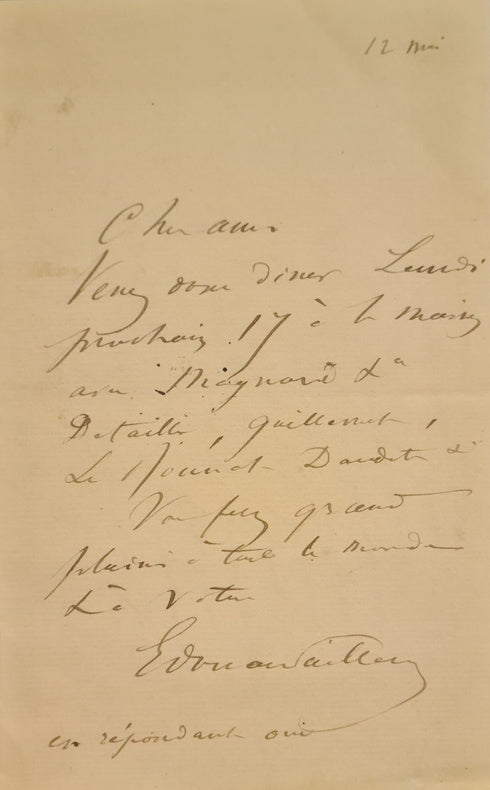 12 mai
Cher ami
Venez donc diner Lundi
prochain 17 à la maison
avec Magnard &a
Detaille, Guillemet,
Le Bourret Daudet &
Vous ferez grand
plaisir à tout le monde
& à Votre
Edouard
en répondant oui